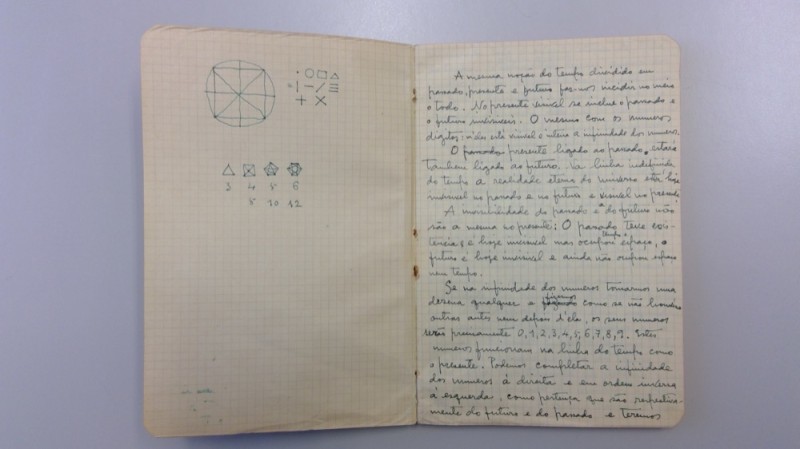 3 4 5 6
5 10 12
A mesma noção do tempo dividido em
passado, presente e futuro faz-nos incidir no meio
o todo. No presente visível se inclue o passado e
o futuro invisíveis. O mesmo com os numeros
digitos: neles está visível e inteira a infinidade dos numeros.
O passado presente ligado ao passado, estará
tambem ligado ao futuro. Na linha indefinida
do tempo a realidade eterna do universo está hoje
invisível no passado e no futuro e visível no presente
A invisibilidade do passado e a do futuro não
são a mesma no presente: O passado teve exis-
tencia, é hoje invisível mas ocupou tempo e espaço, o
futuro é hoje invisível e ainda não ocupou espaço
nem tempo.
Se na infinidade dos numeros tomarmos uma
dezena qualquer e como se não houvéra
outras antes nem depois d'ela, os seus numeros
serão precisamente 0, 1, 2, 3, 4, 5, 6, 7, 8, 9. Estes
numeros funcionam na linha do tempo como
o presente. Podemos completar a infinidade
dos numeros á direita e em ordem inversa
á esquerda, como pertença que são respectiva-
mente do futuro e do passado e teremos